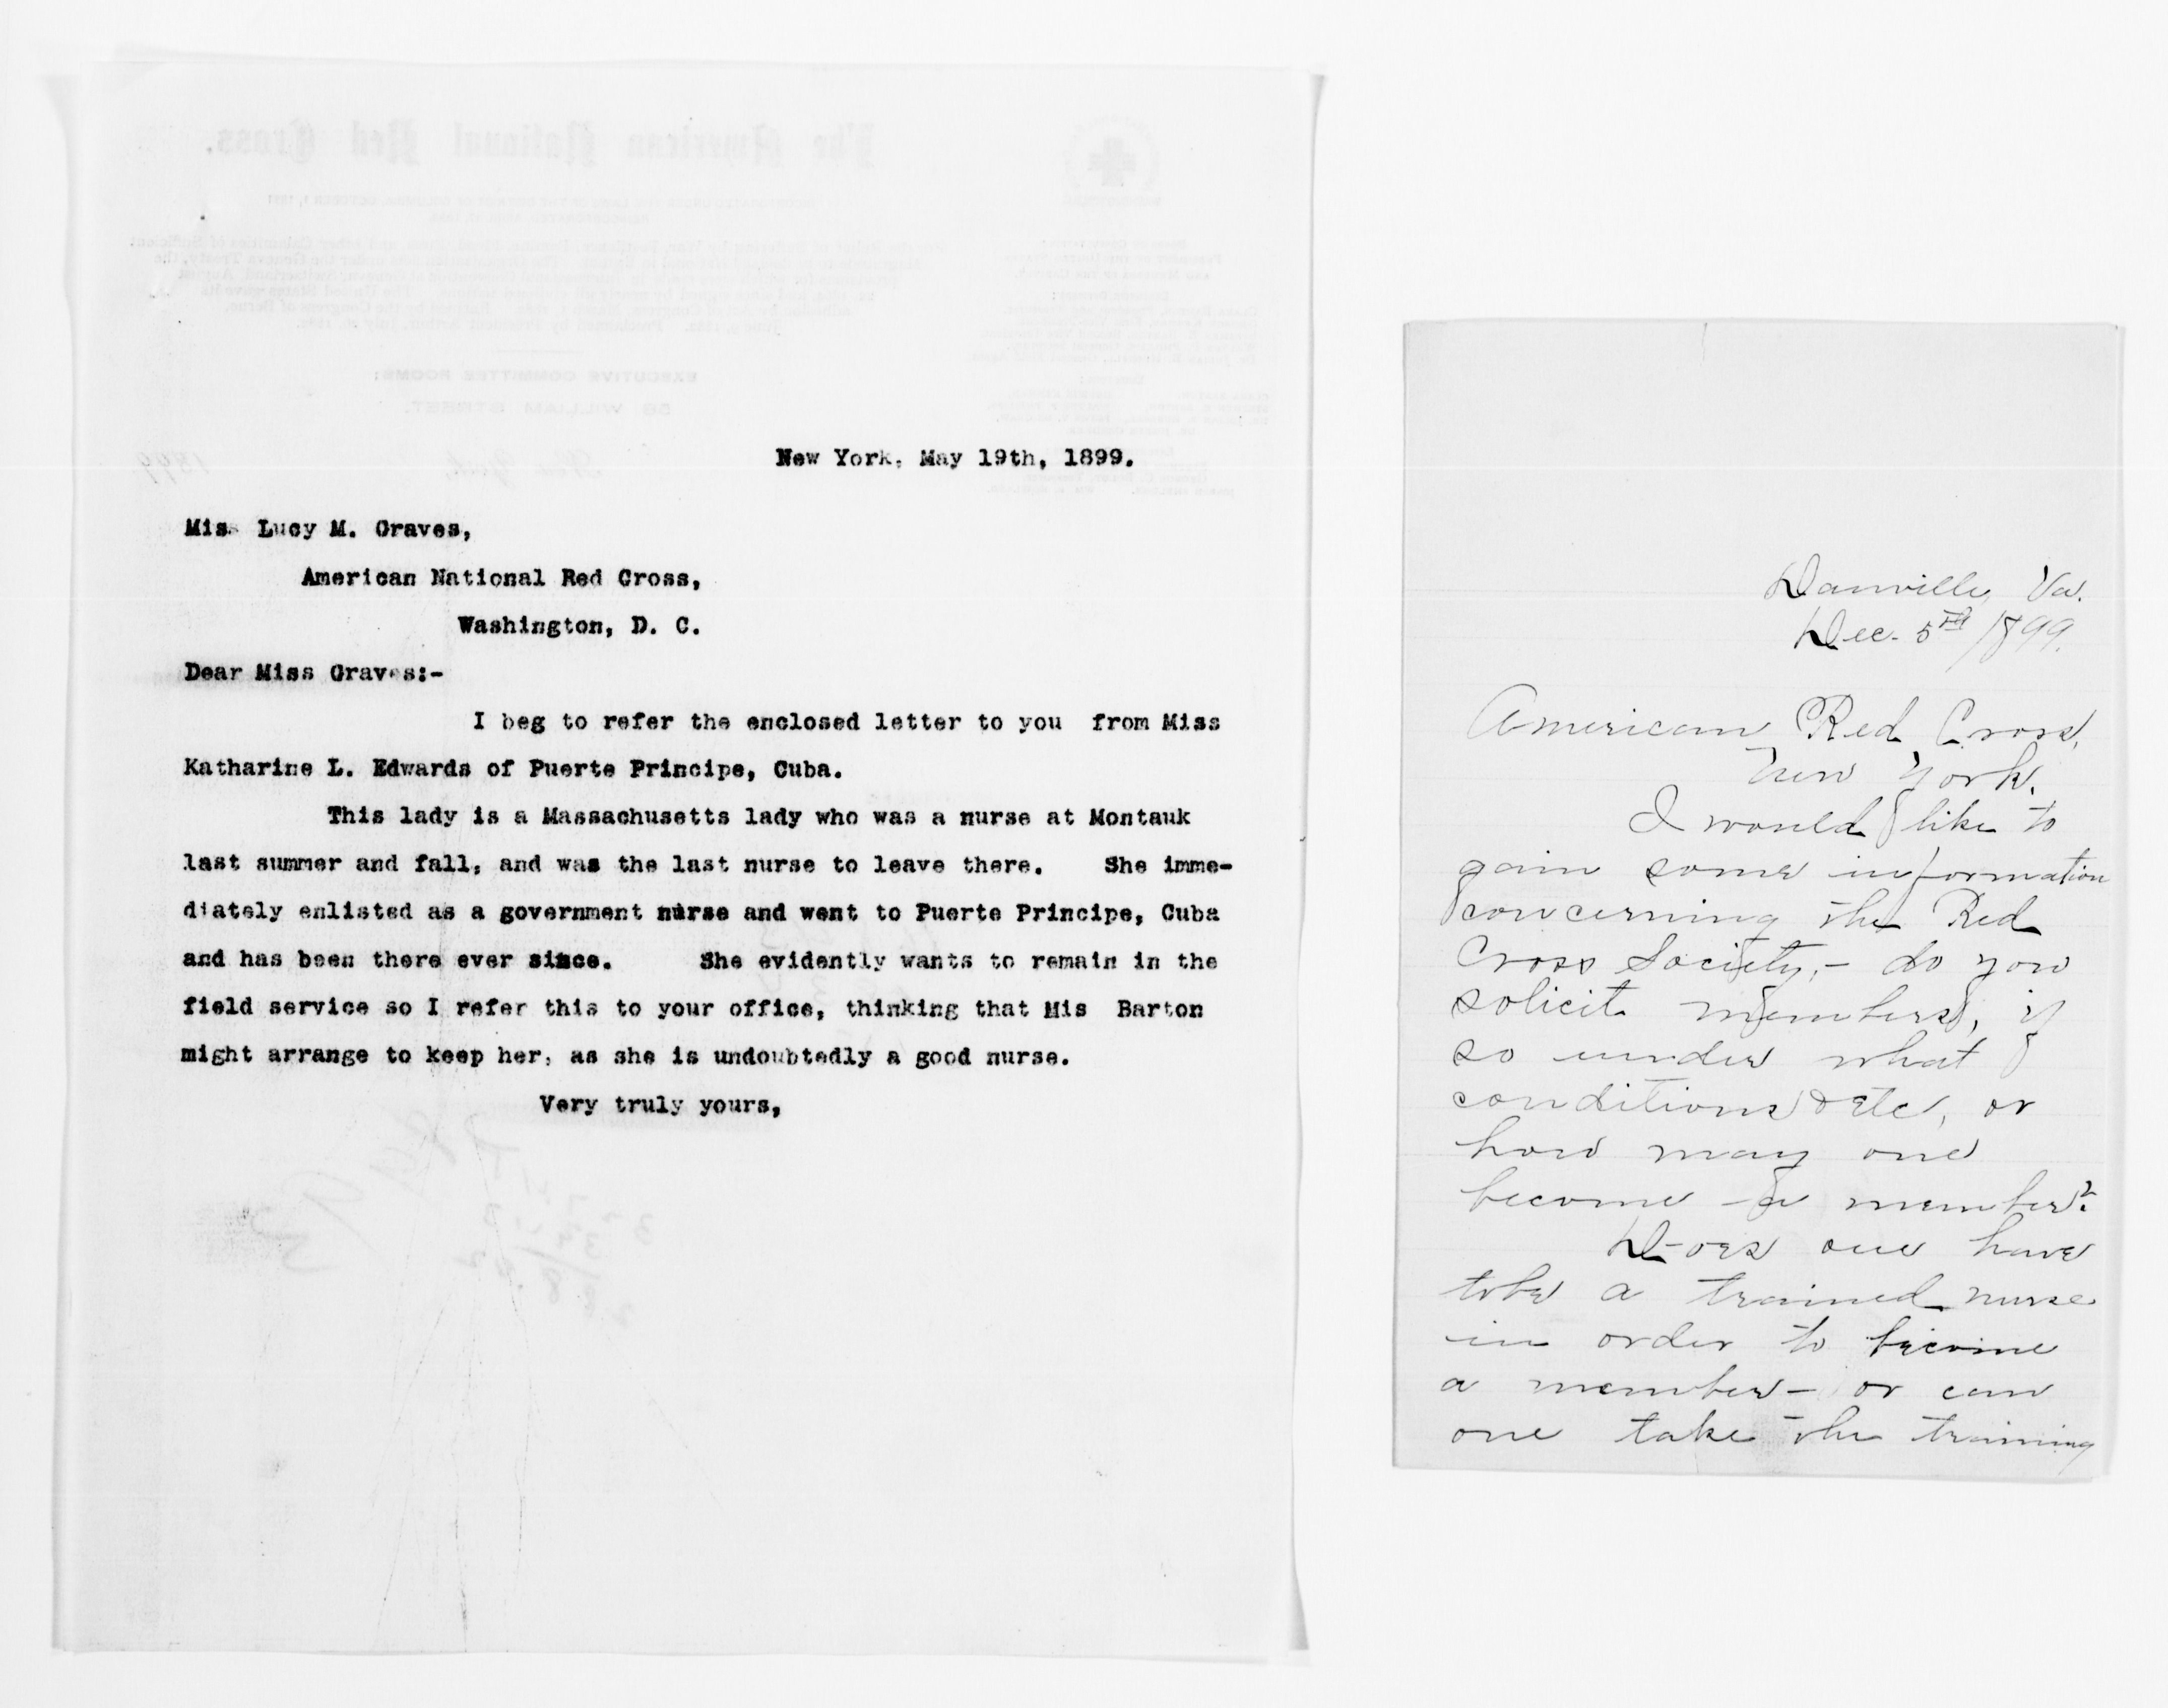 New York, May 19th, 1899.
Mis Lucy M. Graves,
American National Red Cross,
Washington, D. C.
Dear Miss Graves:-
I beg to refer the enclosed letter to you from Miss
Katharine L. Edwards of Puerte Principe, Cuba.
This lady is a Massachusetts lady who was a nurse at Montauk
last summer and fall, and was the last nurse to leave there. She imme-
diately enlisted as a government nurse and went to Puerte Principe, Cuba
and has been there ever since. She evidently wants to remain in the
field service so I refer this to your office, thinking that Mis Barton
might arrange to keep her, as she is undoubtedly a good nurse.
Very truly yours,
Danville, Va.
Dec. 5th 1899.
American Red Cross,
New York.
I would like to
gain some information
concerning the Red
Cross Society,- do you
solicit members, if
so under what
conditions & etc, or
how may one
become a member?
Does one have
to be a trained nurse
in order to become
a member - or can
one take the training